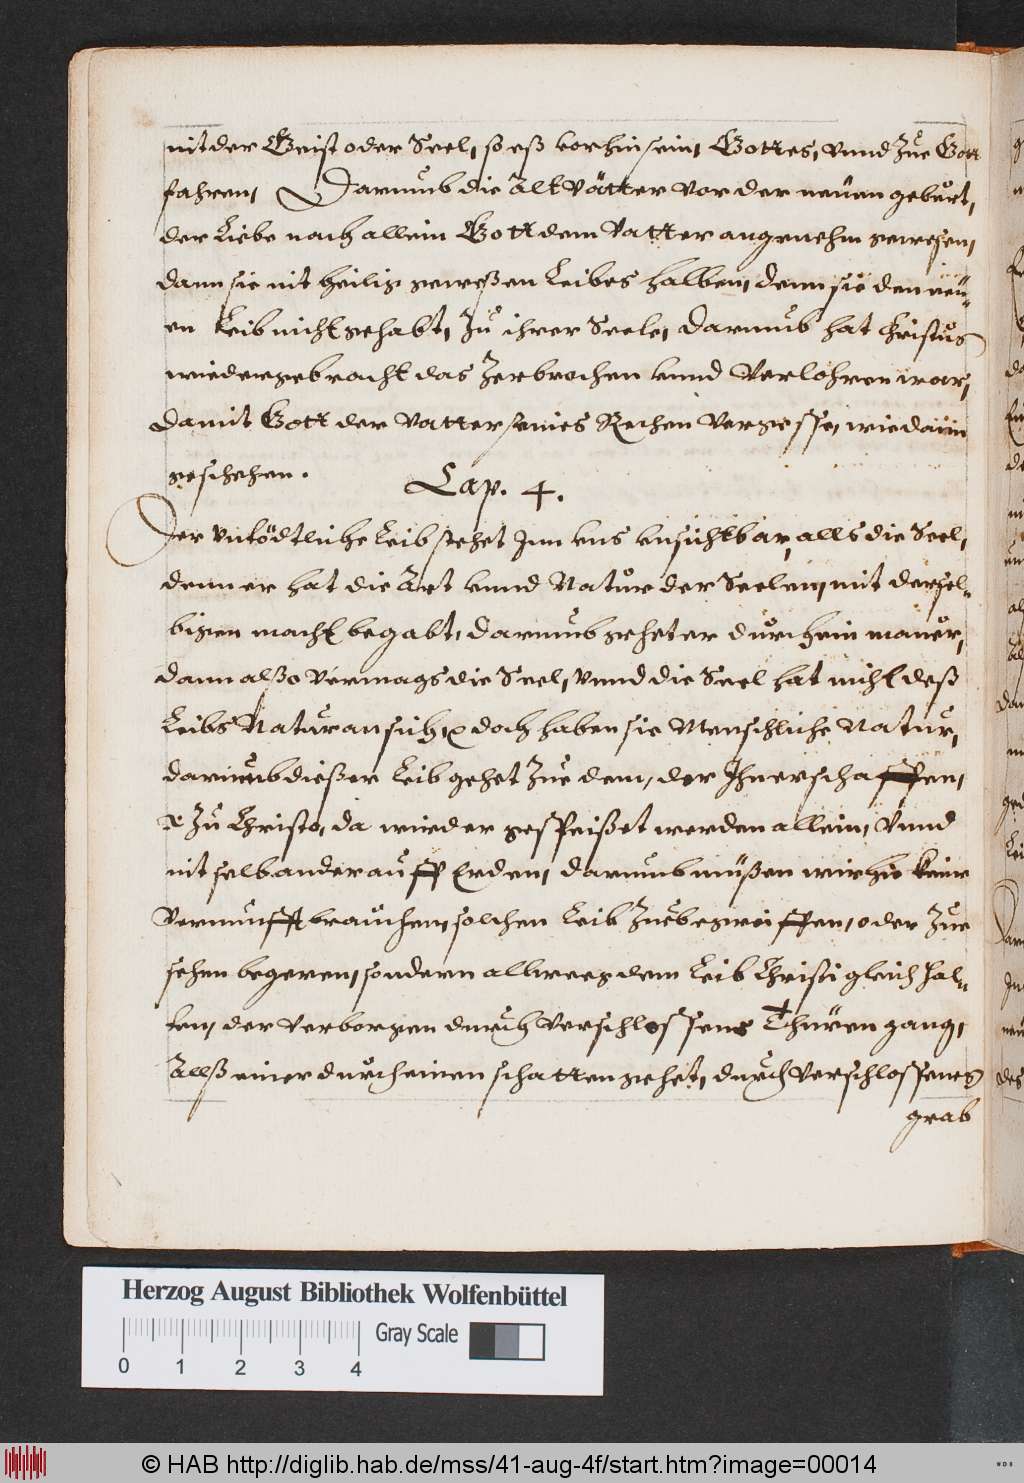 mit der Geist oder Seel, so eß vorhin sein, Gottes, vnnd Zue Gott
fahren, Darumb die Altvätter vor der neuen geburt,
der Liebe nach allein Gott dem Vatter angenehm gewesen,
dann sie nit heilig geweßen Leibes halben, denn sie den neü¬
en Leib nicht gehabt, Zu ihrer Seele, Darumb hat Christus
wiedergebracht das Zerbrochen vnnd Verlohren war,
Damit Gott der Vatter seines Rechen Vergesse, wie dann
geschehen.
Cap. 4.
Der Vntödtliche Leib stehet Jnn vns vnsichtbar, alls die Seel,
denn er hat die Art vnnd Natur der Seelen, mit dersel¬
bigen macht begabt, darumb gehet er durch ein mauer,
dann alßo Vermags die Seel, Vnnd die Seel hat nicht deß
Leibs Natur an sich, doch haben sie Menschliche Natur,
darumb dießer Leib gehet Zue dem, der Jhn erschaffen,
Zu Christo, da wird er gespeißet werden allein, Vnnd
nit selbander auff Erden, darumb müßen wir hie keine
Vernunfft brauchen, solchen Leib Zuebegreiffen, oder Zue
sehen begeren, sondern allweeg dem Leib Christi gleich hal¬
ten, der Verborgen durch Verschlossene Thüren gang,
Allß einer durch einen schatten gehet, durch Verschlossenes
grab
Herzog August Bibliothek Wolfenbüttel
Gray Scale
0 1 2 3 4
© HAB http://diglib.hab.de/mss/41-aug-4f/start.htm?image=00014